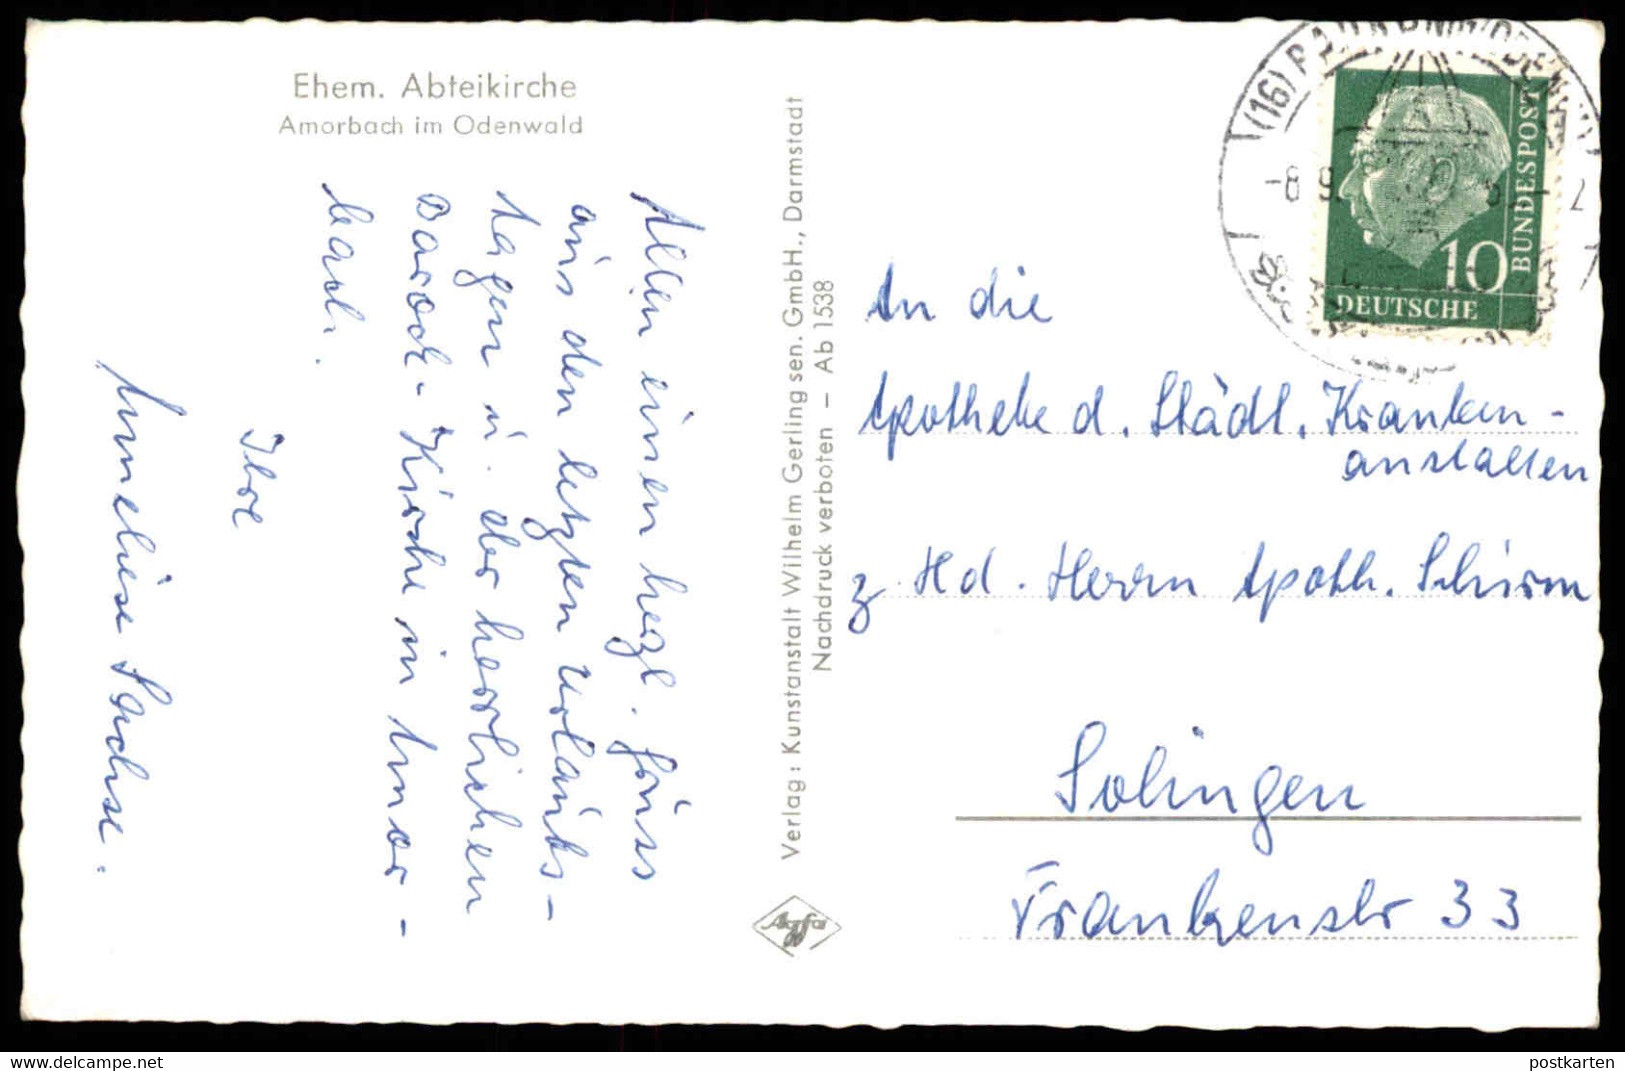 Ehem. Abteikirche
Amorbach im Odenwald
Allen einen herzl. Gruss
aus den letzten Urlaubs-
tagen u. der herrlichen
Barock-Kirche in Amor-
bach.
Ihre
Anneliese Sachse.
Verlag: Kunstanstalt Wilhelm Gerling sen. GmbH., Darmstadt
Nachdruck verboten – Ab 1538
Agfa
(16)
-8.9.
10
BUNDESPOST
DEUTSCHE
An die
Apotheke d. Städt. Kranken-
anstalten
z Hd. Herrn Apoth. Schirm
Solingen
Frankenstr 33
www.delcampe.net
postkarten